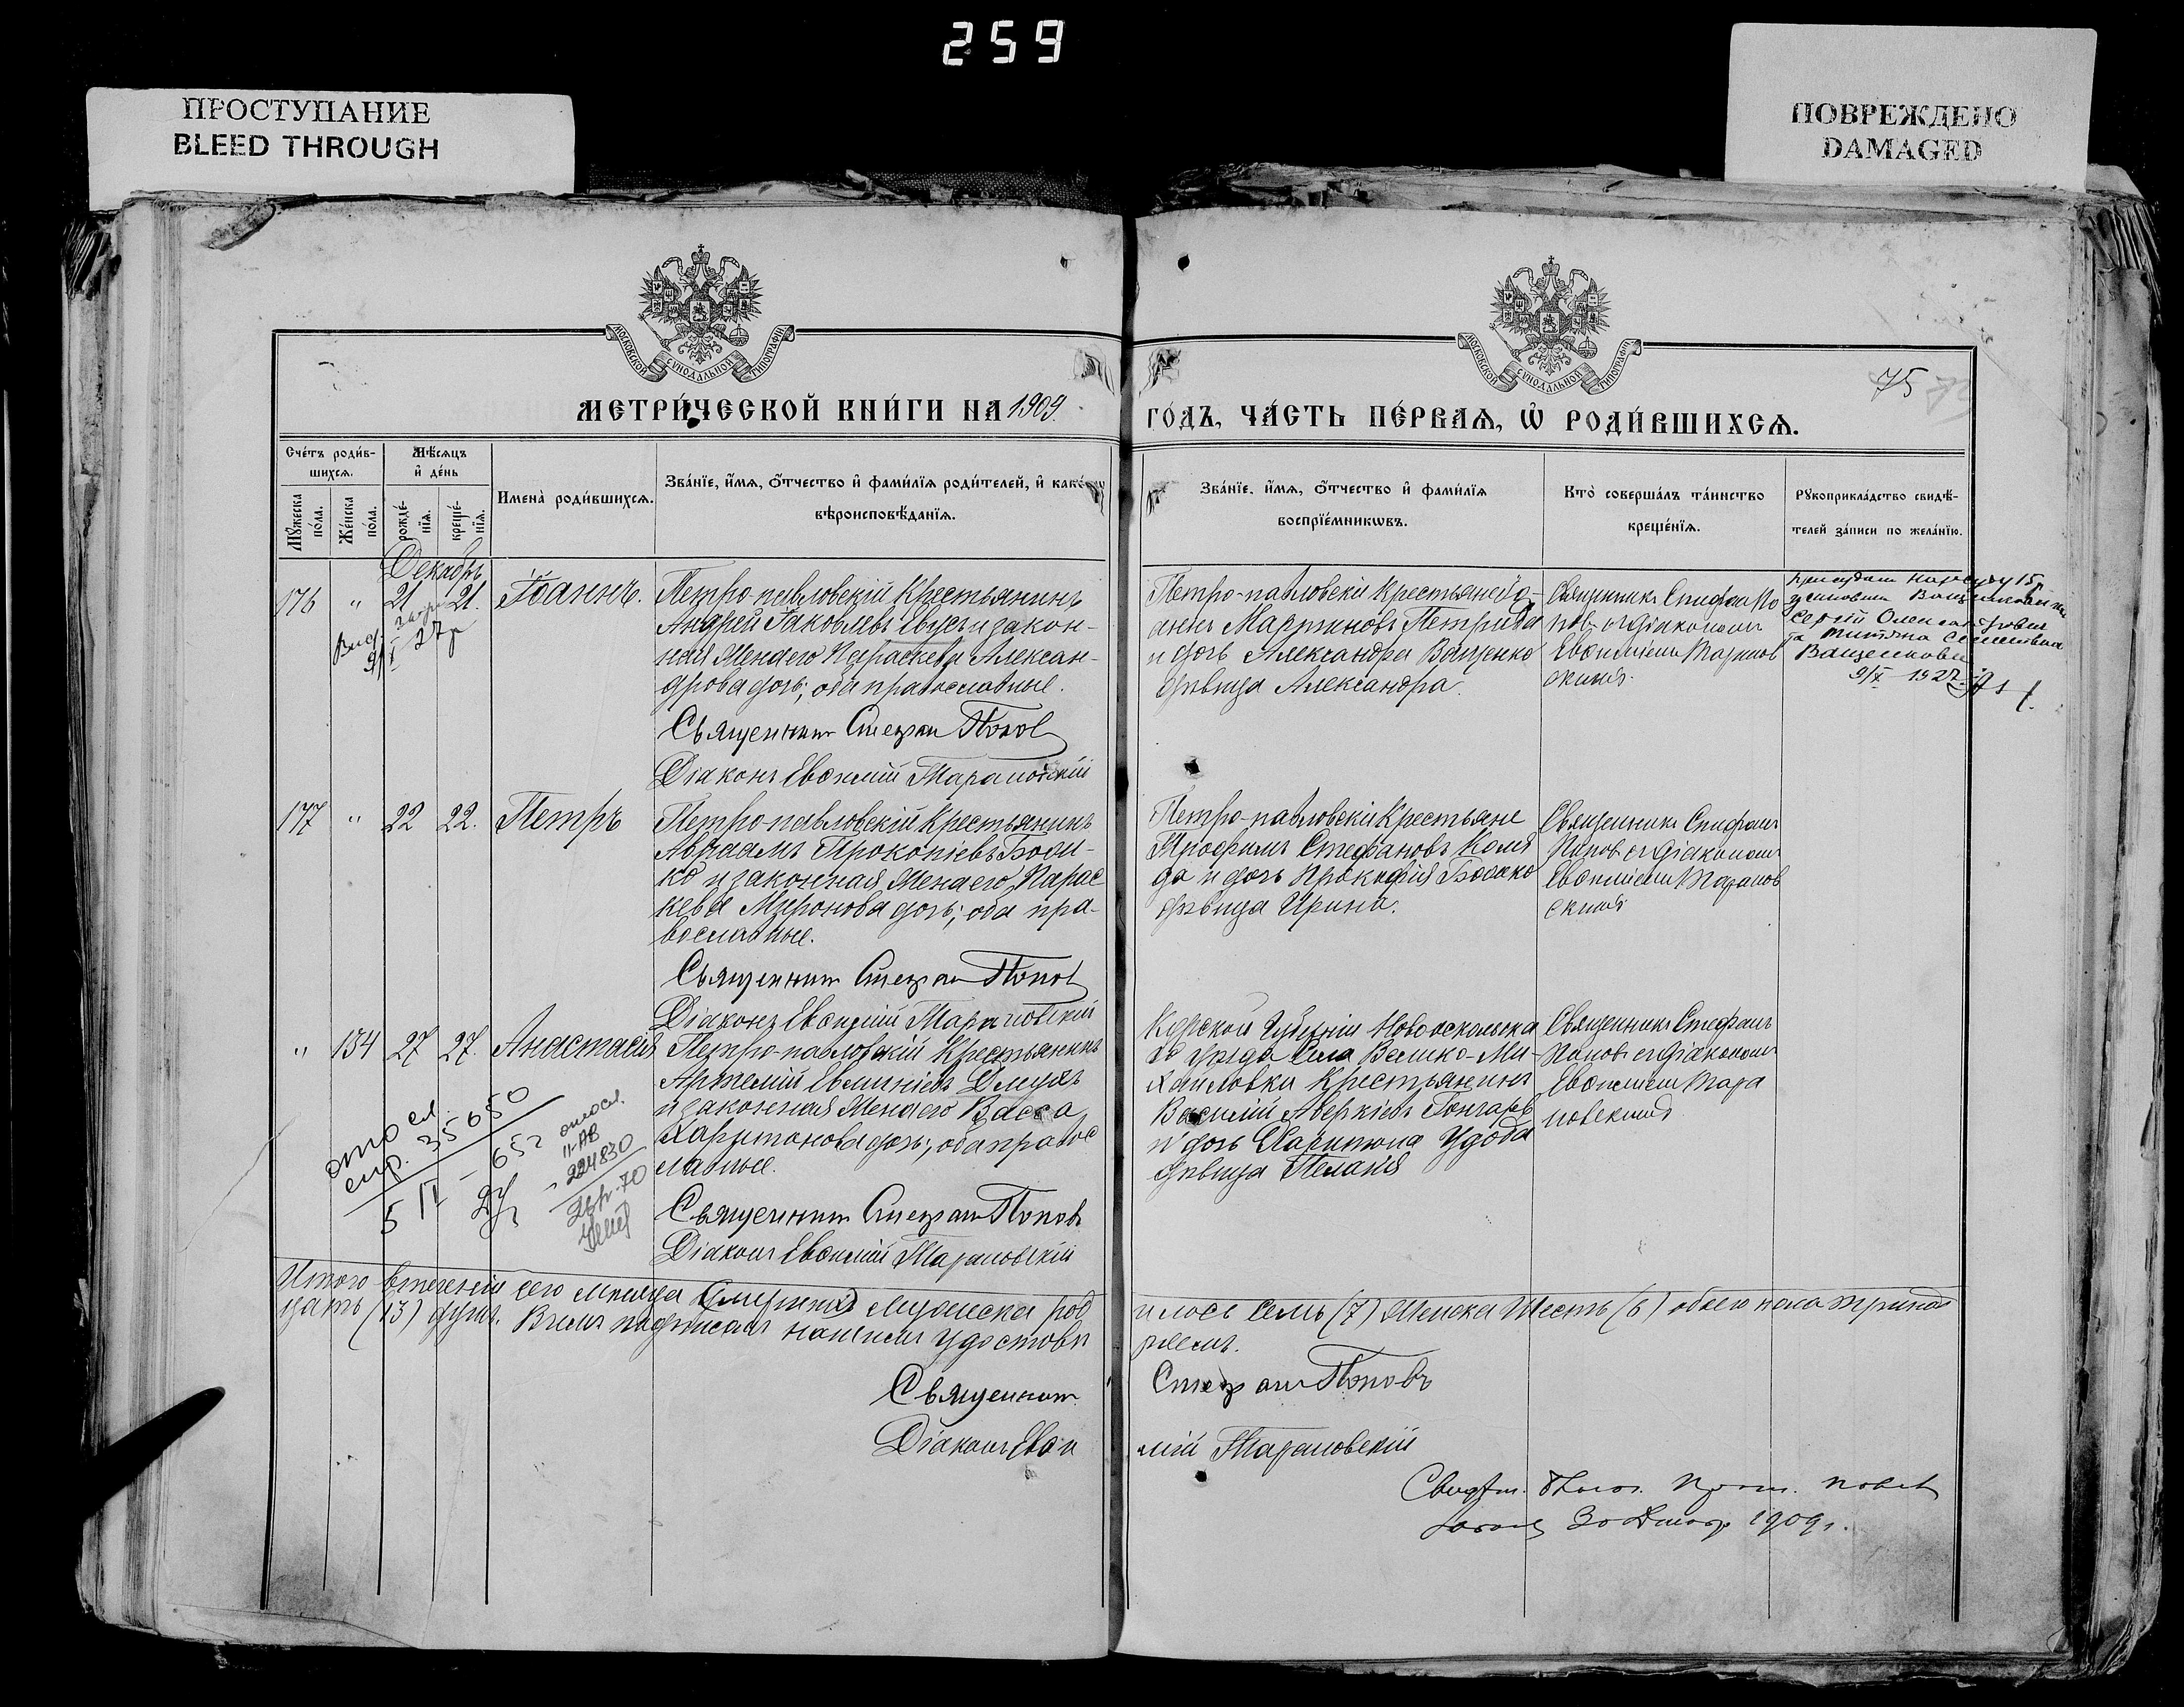 259
ПРОСТУПАНИЕ
BLEED THROUGH
ПОВРЕЖДЕНО
DAMAGED
МОСКОВСКОЙ СУНОДАЛЬНОЙ ТИПОГРАФІИ
МОСКОВСКОЙ СУНОДАЛЬНОЙ ТИПОГРАФІИ
75
МЕТРИ́ЧЕСКОЙ КНИ́ГИ НА 1909
ГО́ДЪ, ЧА́СТЬ ПЕ́РВАѦ, Ѡ҆ РОДИ́ВШИХСѦ.
Сче́тъ роди́в-
шихсѧ.
Мѣ́сѧцъ
и҆ де́нь
Мꙋ́жеска
по́ла.
Же́нска
по́ла.
рожде́-
нїѧ.
креще́-
нїѧ.
Имена̀ роди́вшихсѧ.
Зва́нїе, и҆́мѧ, ѻ҆́тчество и҆ фами́лїѧ роди́телей, и҆ како́гѡ
вѣроисповѣ́данїѧ.
Зва́нїе, и҆́мѧ, ѻ҆́тчество и҆ фами́лїѧ
воспрїе́мникѡвъ.
Кто̀ соверша́лъ та́инство
креще́нїѧ.
Рꙋкоприкла́дство свидѣ́-
телей за́писи по жела́нїю.
Декабрь
176 " 21 21. Іоаннъ.
Петро-павловскій Крестьянинъ
Андрей Іаковлевъ и закон-
ная Жена его Параскева Алексан-
дрова дочь; оба православные.
Священникъ Стефан Попов
Діаконъ Евѳимій Тарановскій
Петро-павловскіи Крестьяне Іо-
аннъ Мартиновъ Петрида
и дочь Александра Ващенко
дѣвица Александра.
Священникъ Стефан По
повъ съ діакономъ
Евѳиміемъ Таранов
скимъ.
Сергій Олександрович
та
Ващенкови
9/X 1927
177 " 22 22. Петръ
Петро-павловскій Крестьянинъ
Авраамъ Прокопіевъ Боди-
ко и законная Жена его Парас
кева Миронова дочь; оба пра-
вославные.
Священникъ Стефан Попов
Діаконъ Евѳимій Тарановскій
Петро-павловскіи Крестьяне
Трофимъ Стефановъ Коля
да и дочь Прокофія Бодико
дѣвица Ирина.
Священникъ Стефанъ
Поповъ съ діакономъ
Евѳиміемъ Таранов
скимъ
" 134 27 27. Анастасія
Петро-павловскій Крестьянинъ
Артемій
и законная Жена его Васса
Харитонова дочь; оба правос
лавные.
Священникъ Стефан Поповъ
Діаконъ Евѳимій Тарановскій
Курской Губерніи Новооскольска
го уѣзда Села Велико-Ми-
хайловки Крестьянинъ
Василій Аверкіевъ Гончаровъ
и дочь Харитона Удода
дѣвица Пелагія
Священникъ Стефанъ
Поповъ съ діакономъ
Евѳиміемъ Тара
новскимъ
35050
5 II - 652
II-АВ
224830
Итого втеченіи сего мѣсяца Мужеска род
илось семь (7) Женска Шесть (6) обоего пола тринад
цать (13) душъ. Въ чемъ подписомъ нашимъ удостовѣ
ряемъ.
Священникъ Стефанъ Поповъ
Діаконъ Евѳи
мій Тарановскій
30 1909 г.